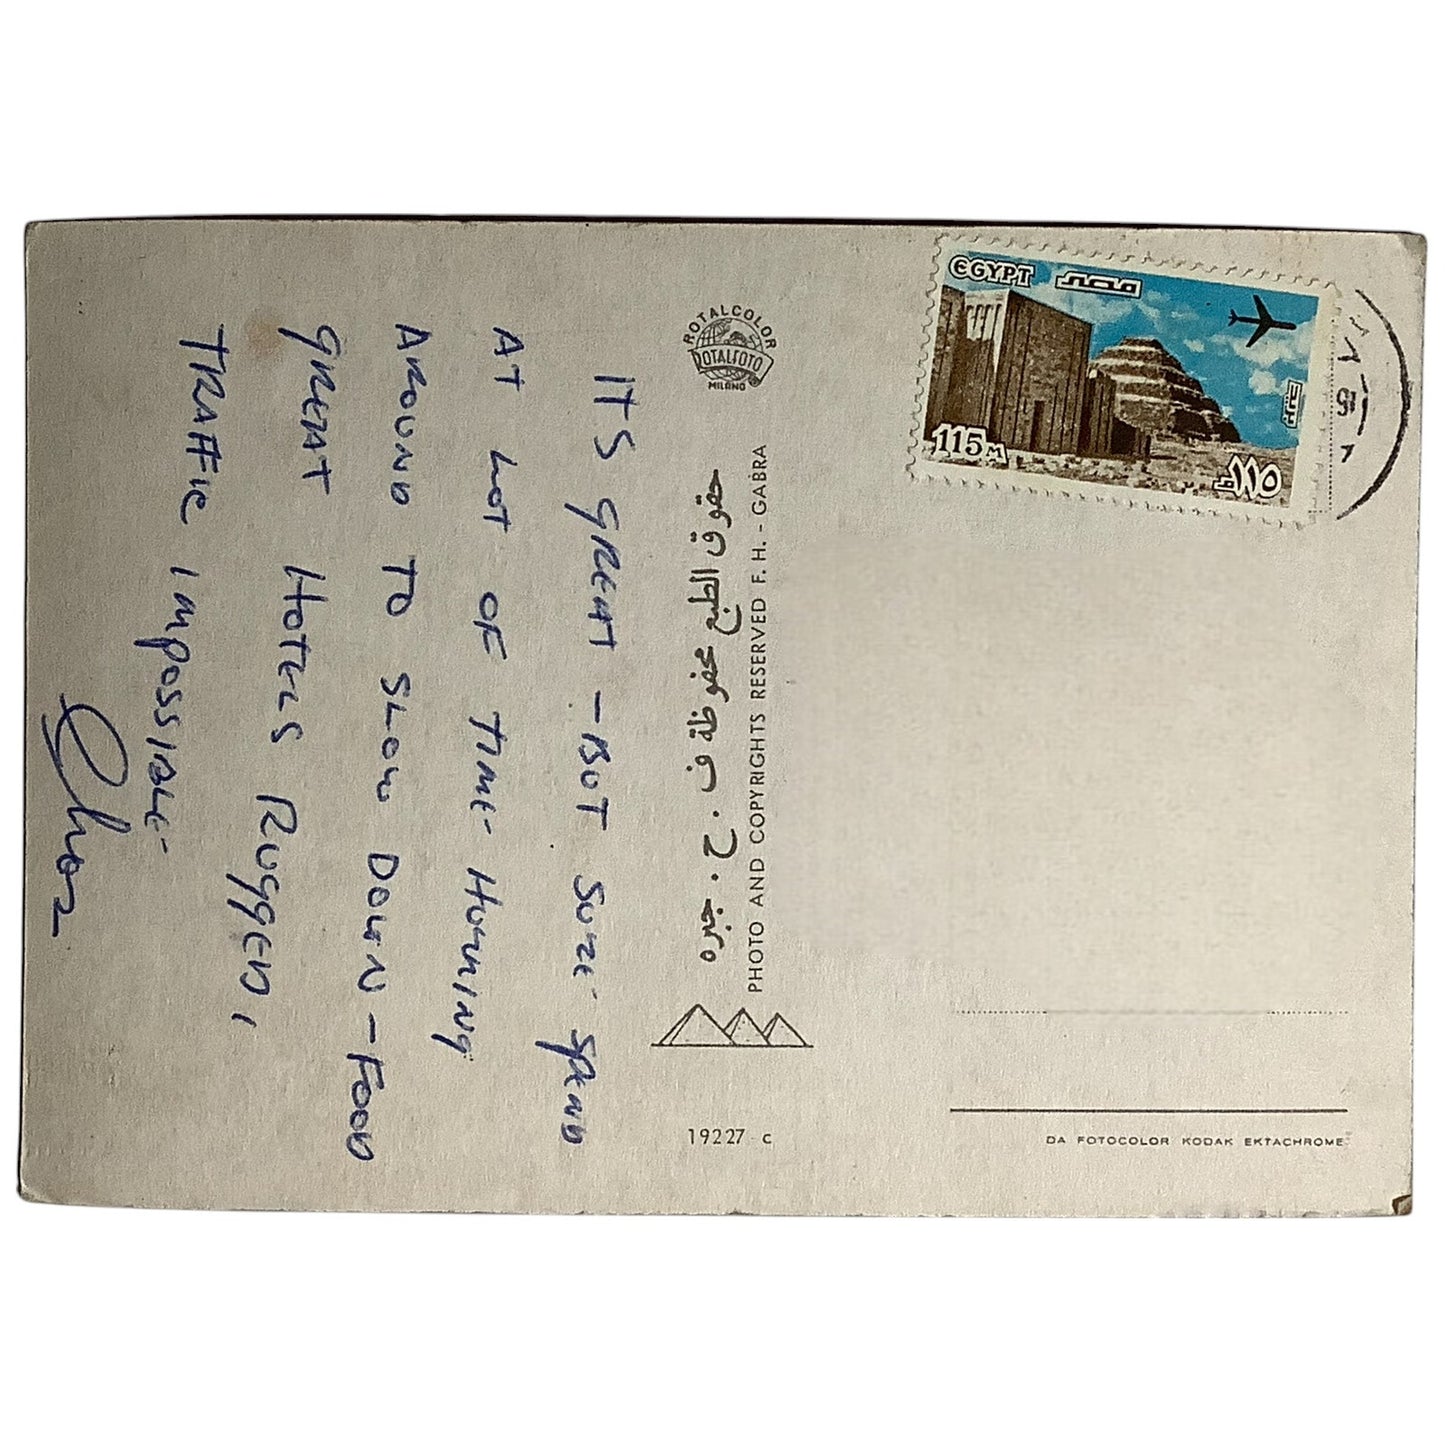 ITS GREAT - BUT SURE SPEND
AT LOT OF TIME - HURRING
AROUND TO SLOW DOWN - FOOD
GREAT HOTELS RUGGED,
TRAFFIC IMPOSSIBLE -
Chas
ROTALCOLOR
ROTALFOTO
MILANO
حقوق الطبع محفوظة ف . ح . جبره
PHOTO AND COPYRIGHTS RESERVED F. H. - GABRA
19227 - C
EGYPT مصر
115M
١١٥
DA FOTOCOLOR KODAK EKTACHROME